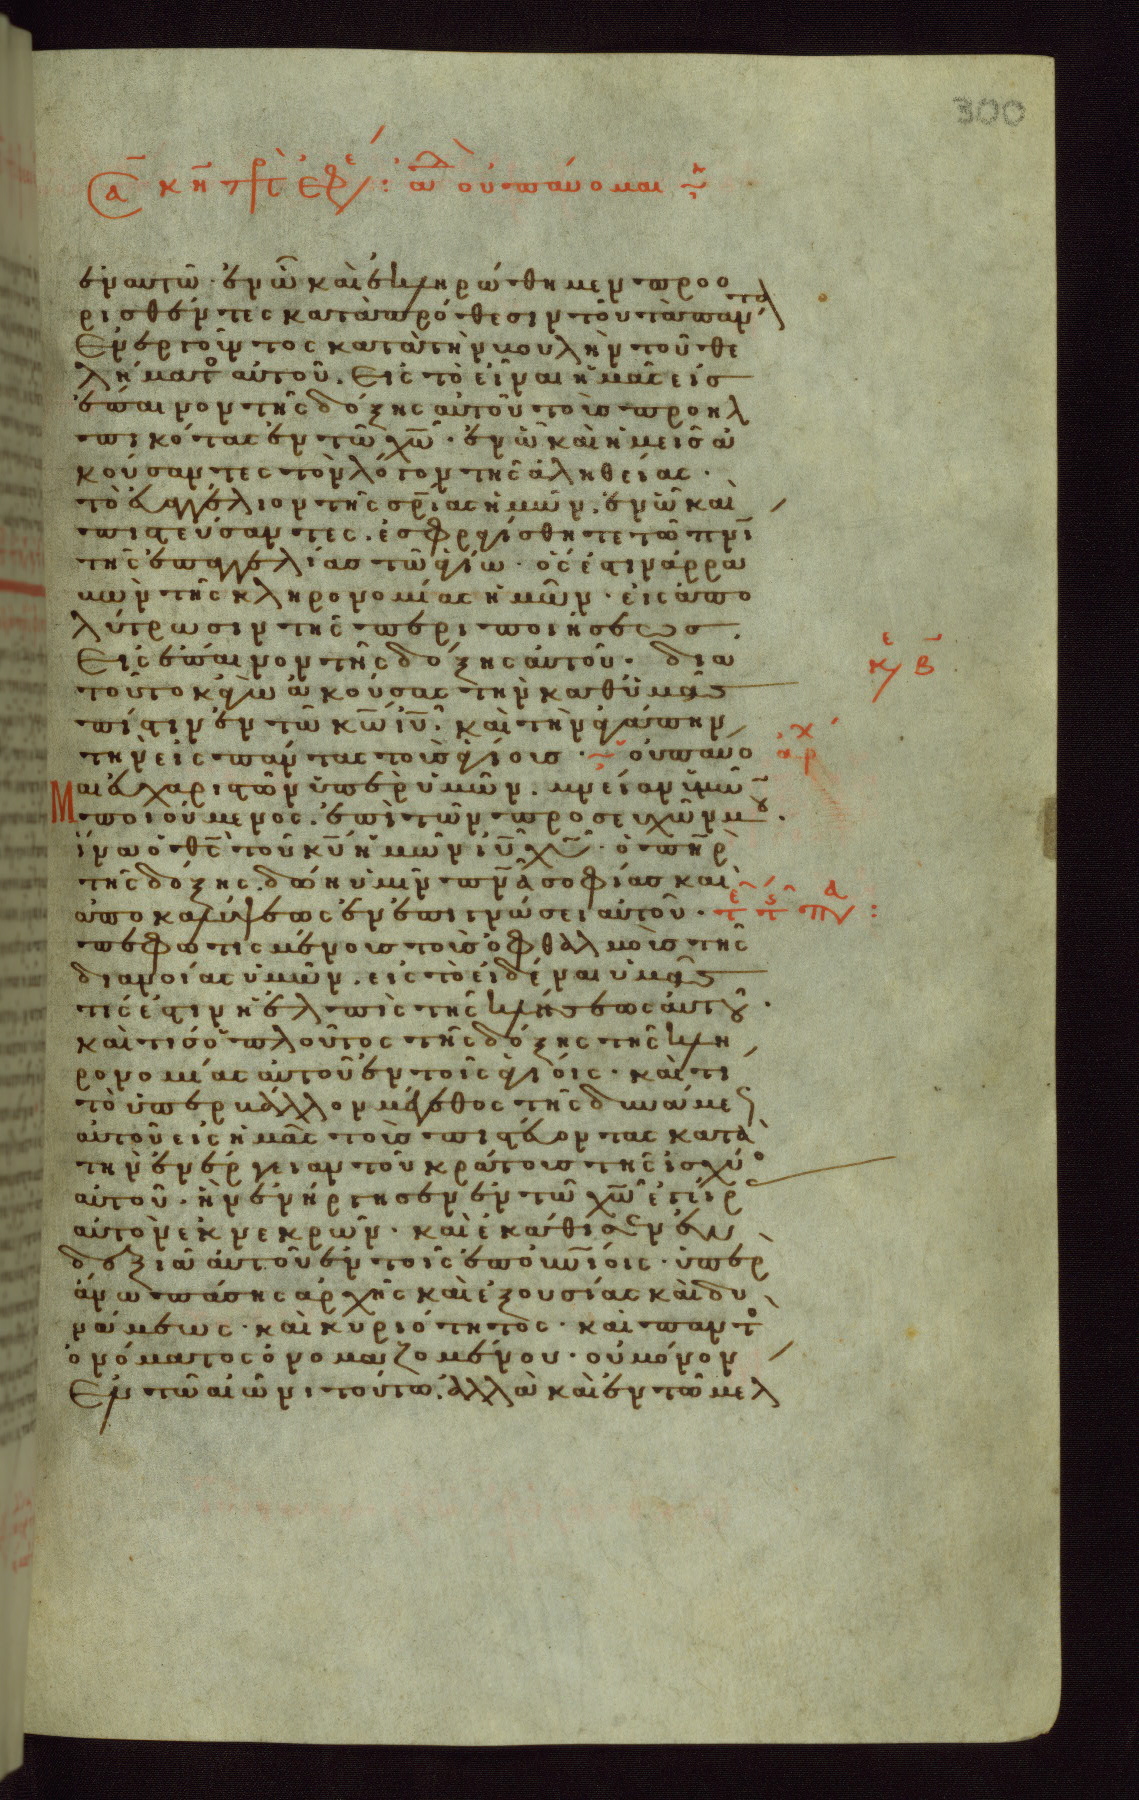 300
α κη πρὸς Εφε : ἀδελ οὐ παύομαι
ἐν αυτῶ · ἐν ὧ καὶ ἐκληρώθημεν προο
ρισθέντες κατὰ πρόθεσιν τοῦ τὰ πάντα
Ενεργοῦντος κατὰ τὴν βουλὴν τοῦ θε
λήματο αὐτοῦ . Εἰς τὸ εἶναι ἡμᾶς εἰσ
ἔπαινον τῆς δόξης αὐτοῦ τοὺσ προηλ
πικότας ἐν τῶ χῶ · ἐν ὧ καὶ ἡμεῖσ ἀ
κούσαντες τὸν λόγον τῆς ἀληθείας ·
τὸ εὐαγγέλιον τῆς σρίας ἡμῶν . ἐν ὧ καὶ
πιστεύσαντες . ἐσφραγίσθητε τῶ πνι
τῆς ἐπαγγελίασ τῶ ἁγίω · ὅς ἐστιν ἀρρα
βὼν τῆς κληρονομίας ἡμῶν · εἰς ἀπο
λύτρωσιν τῆς περιποιήσεωσ .
Εἰς ἔπαινον τῆς δόξης αὐτοῦ · δια
κε β
τοῦτο κἀγὼ ἀκούσας τὴν καθ ὑμᾶσ
πίστιν ἐν τῶ κω ιυ . καὶ τὴν ἀγάπην
τὴν εἰς πάντας τοὺσ ἁγίουσ · οὐ παύο αρχ
Μαι εὐχαριστῶν ὑπὲρ ὑμῶν . μνείαν ὑμῶ
ποιούμενος . ἐπὶ τῶν προσευχῶν μου .
ἵνα ὁ θς τοῦ κυ ἡμῶν ιυ χυ · ὁ πηρ
τῆς δόξης . δώη ὑμῖν πνα σοφίασ καὶ
ἀποκαλύψεως ἐν ἐπιγνώσει αὐτοῦ ·
πεφωτισμένουσ τοὺσ ὀφθαλμοὺσ τῆς
διανοίας ὑμῶν . εἰς τὸ εἰδέναι ὑμᾶσ
τίς ἐστιν ἡ ἐλπὶς τῆς κλήσεως αὐτοῦ .
καὶ τίσ ὁ πλοῦτος τῆς δόξης τῆς κλη
ρονομίας αὐτοῦ ἐν τοῖς ἁγίοις · καὶ τί
τὸ ὑπερβάλλον μέγεθος τῆς δυνάμε
αὐτοῦ εἰς ἡμᾶς τοὺσ πιστεύοντας κατὰ
τὴν ἐνέργειαν τοῦ κράτουσ τῆς ἰσχύο
αὐτοῦ · ἣν ἐνήργησεν ἐν τῶ χω ἐγείρ
αὐτὸν ἐκ νεκρῶν · καὶ ἐκάθισεν ἐν
δεξιᾶ αὐτοῦ ἐν τοῖς ἐπουνίοις · ὑπερ
άνω πάσης ἀρχῆς καὶ ἐξουσίας καὶ δυ
νάμεως · καὶ κυριότητος · καὶ παντο
ὀνόματος ὀνομαζομένου · οὐ μόνον
Εν τῶ αἰῶνι τούτω . ἀλλὰ καὶ ἐν τῶ μελ